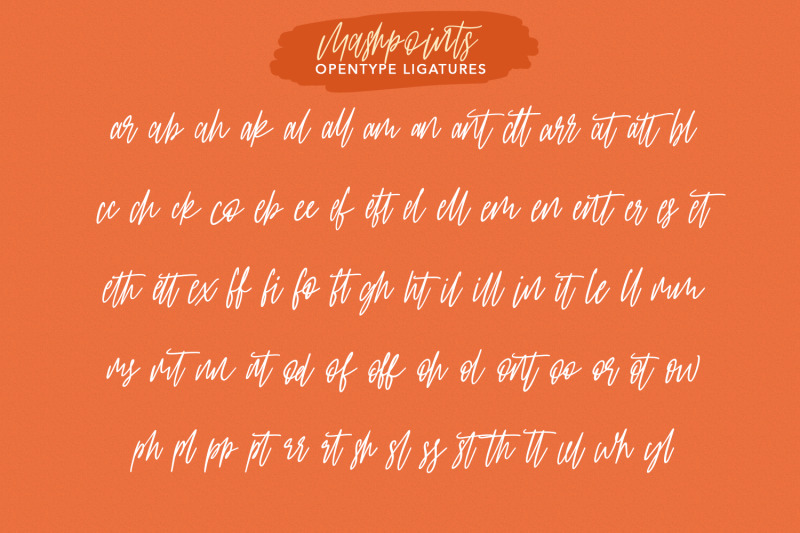 Mashpoints
OPENTYPE LIGATURES
ar ab ah ak al all am an ant att arr at att bl
cc ch ck co eb ee ef eft el ell em en ent er es et
eth ett ex ff fi fo ft gh ht il ill in it le ll mm
ms mt nn nt od of off oh ol ont oo or ot ow
ph pl pp pt rr rt sh sl ss st th tt ul wh yl